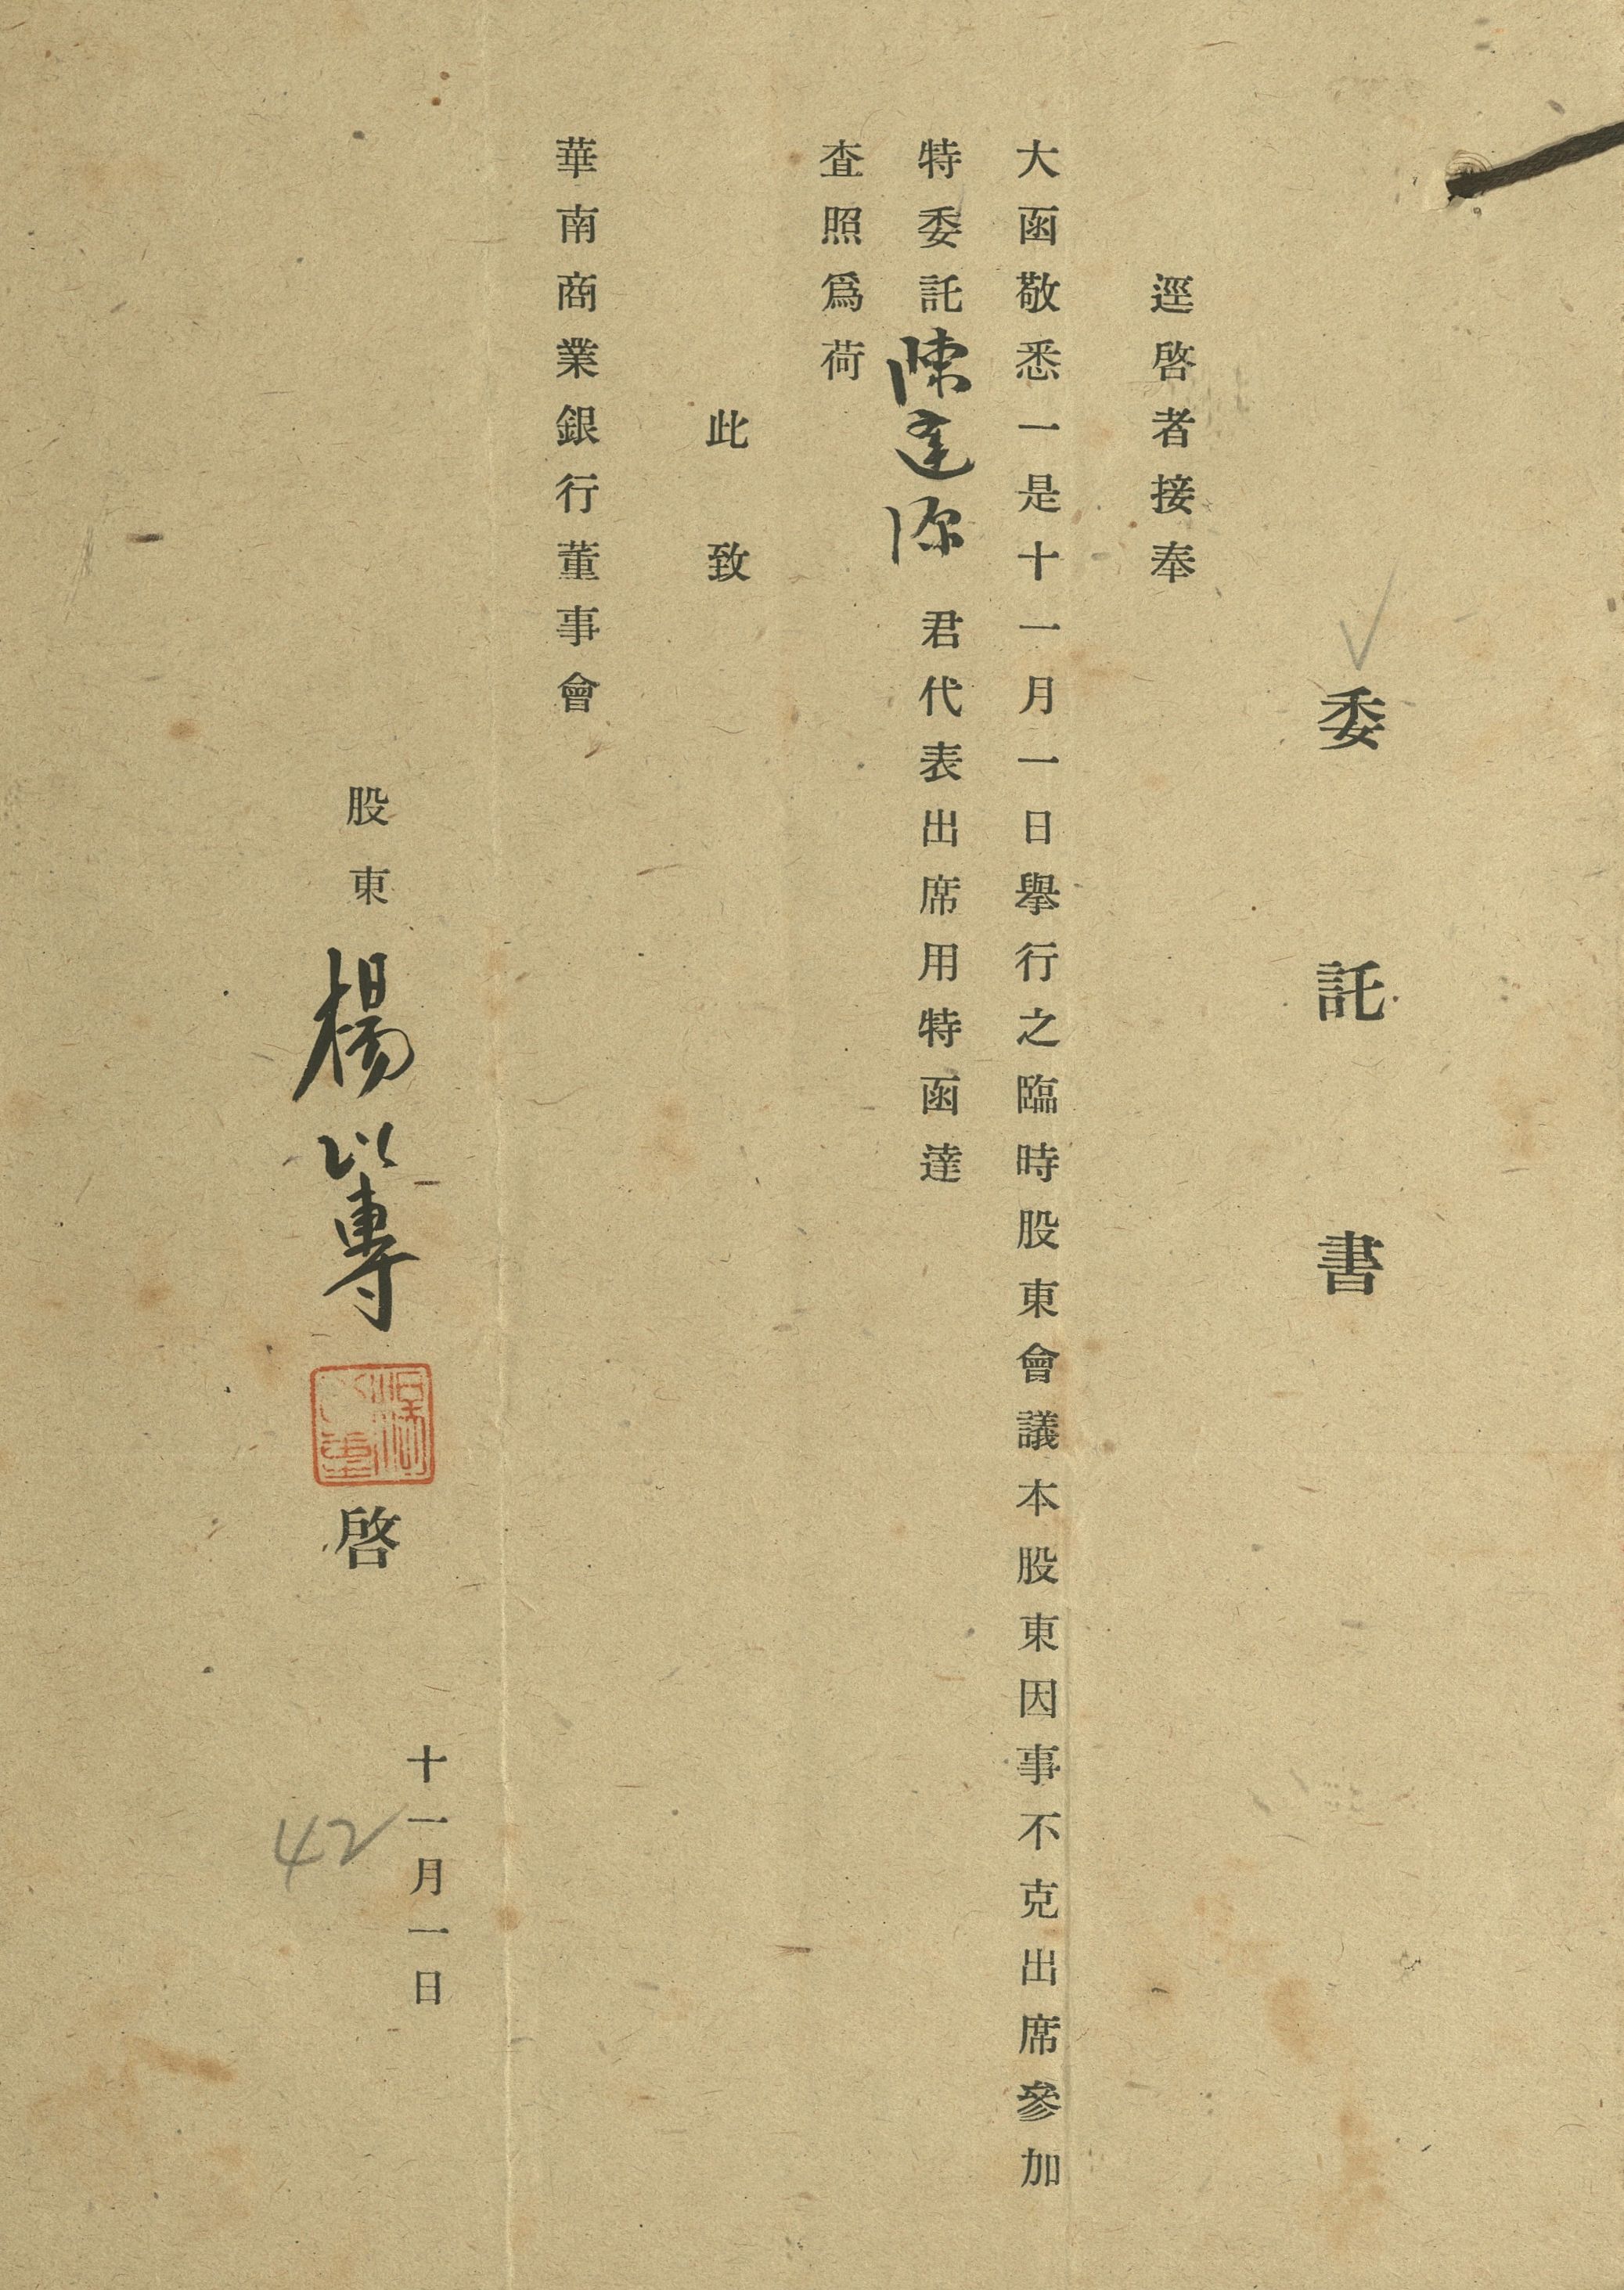 委託書
逕啓者接奉
大函敬悉一是十一月一日舉行之臨時股東會議本股東因事不克出席參加
特委託陳逢源君代表出席用特函達
查照爲荷
此致
華南商業銀行董事會
股東楊以專啓
十一月一日
42